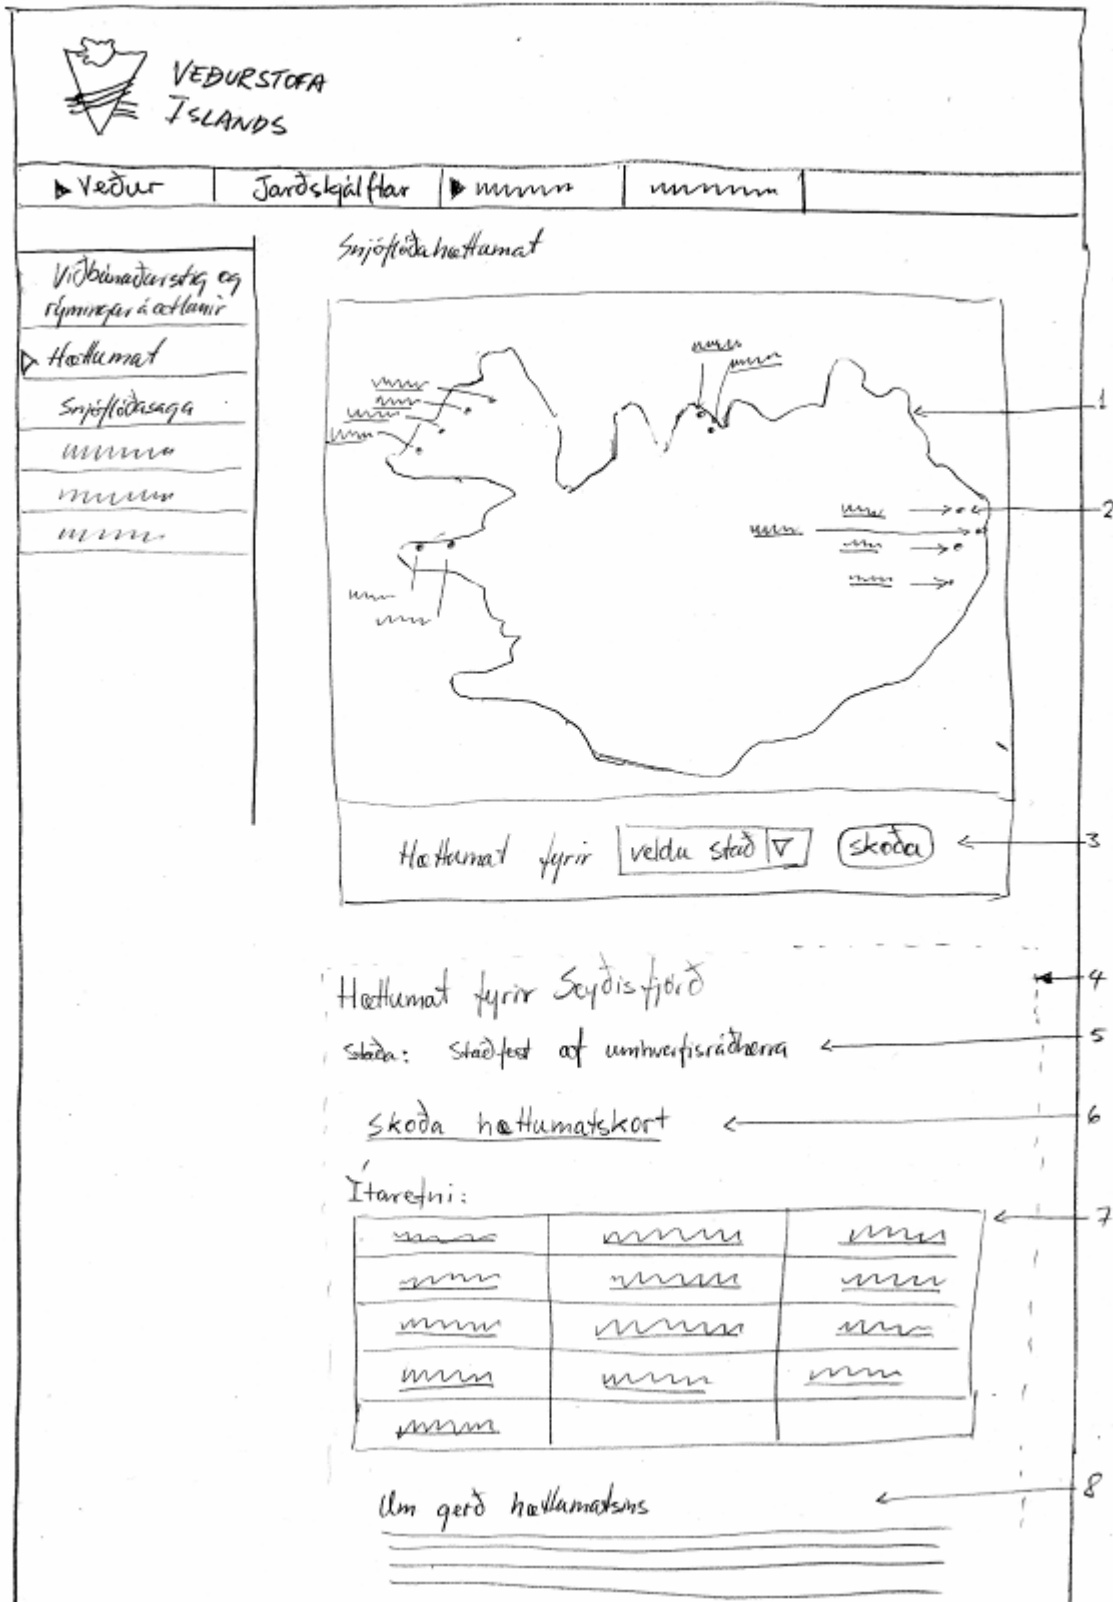 VEÐURSTOFA
ÍSLANDS
Veður
Jarðskjálftar
Snjóflóðahættumat
Viðbúnaðarstig og
rýmingaráætlanir
Hættumat
Snjóflóðasaga
1
2
Hættumat fyrir veldu stað skoða
3
4
Hættumat fyrir Seyðisfjörð
5
Staða: Staðfest af umhverfisráðherra
6
Skoða hættumatskort
Ítarefni:
7
8
Um gerð hættumatsins